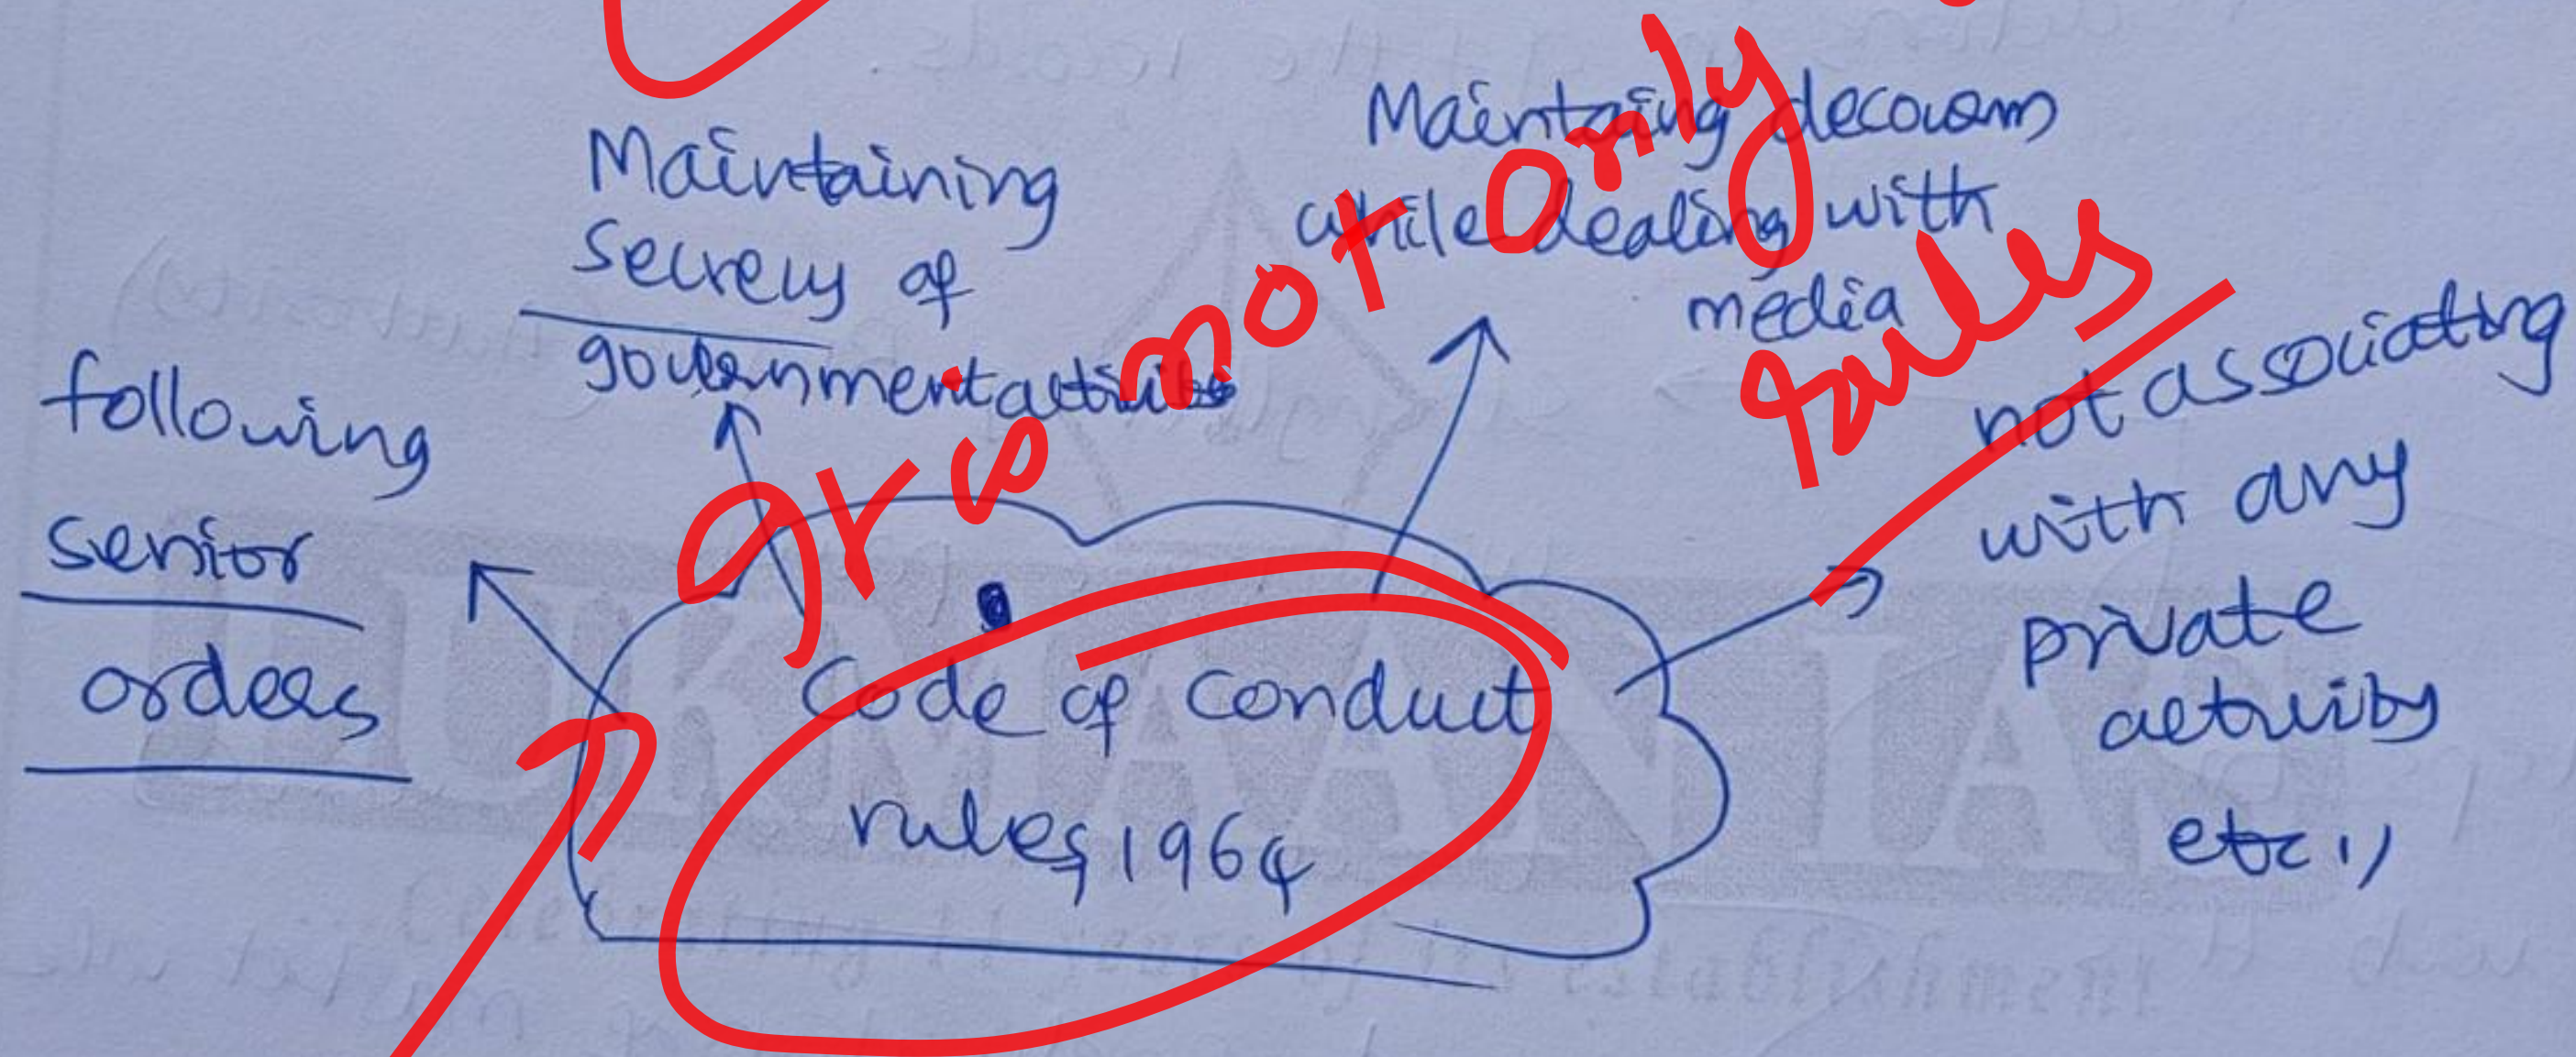 following
senior
orders
Maintaining
Secrecy of
government activities
Maintaing decorum
while dealing with
media
not associating
with any
private
activity
etc.,
Code of Conduct
rules, 1964
It is not only
rules